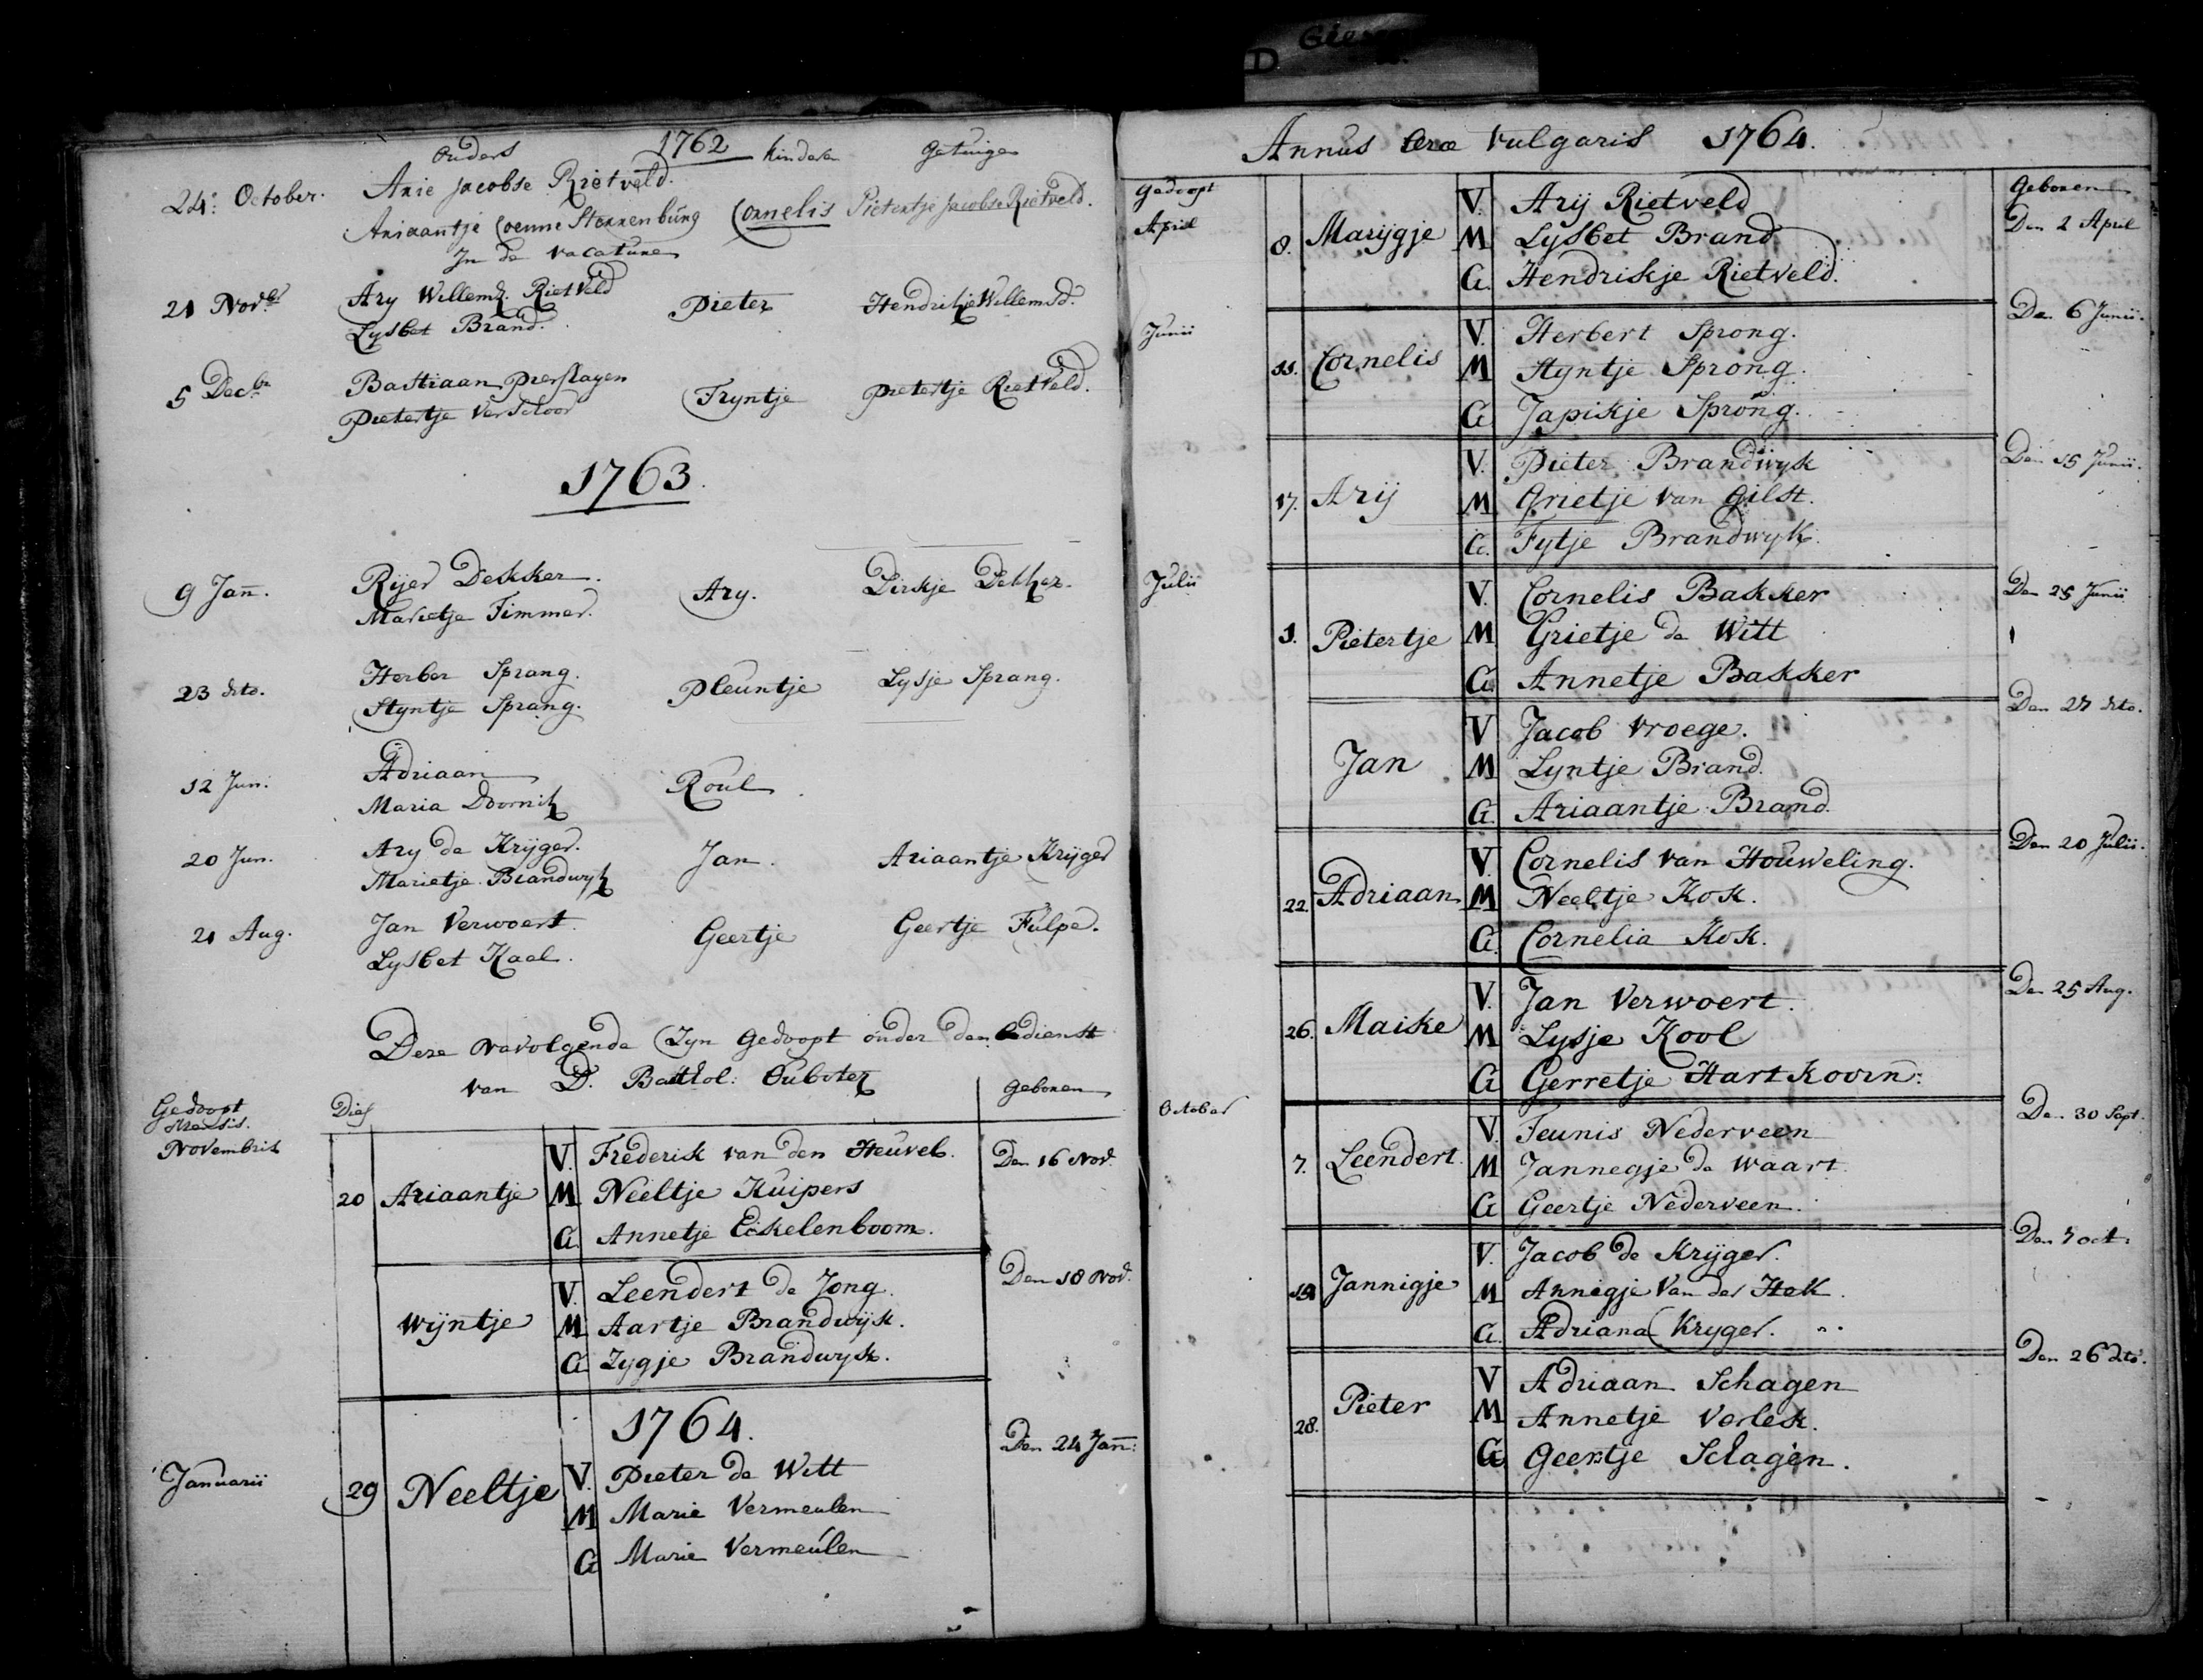 D Giess
1762
Ouders Kinderen Getuigen
24: October. Arie Jacobse Rietveld.
Ariaantje Coenne Sterrenburg Cornelis Pietertje Jacobse Rietveld.
In de vacature
21 Nov.br Ary Willemz. Rietveld Pieter Hendrikje Willemsd.
Lysbet Brand.
5 Decbr Bastiaan Pierslagen Tryntje Pietertje Rietveld.
Pietertje Verschoor
1763.
9 Jan. Rijer Dekker. Ary. Dirkje Dekker.
Marietje Timmer.
23 dito. Herber Sprang. Pleuntje Lysje Sprang.
Styntje Sprang.
12 Jun. Adriaan Roul
Maria Doornik
20 Jun. Ary de Kryger. Jan. Ariaantje Kryger
Marietje Brandwyk
21 Aug. Jan Verwoert. Geertje Geertje Tulpe.
Lysbet Kaal.
Deze navolgende Zyn Gedoopt onder den Cdienst
van D. Barthol: Ouboter
Gedoopt Mensis. Dies Geboren
Novembris
20 Ariaantje V. Frederik van den Heuvel. Den 16 Nov.
M Neeltje Kuipers
G. Annetje Eekelenboom.
Wijntje V. Leendert de Jong. Den 18 Nov.
M Aartje Brandwijk.
G Zygje Brandwyk.
1764.
Januarii 29 Neeltje V. Pieter de Witt Den 24 Jan:
M Marie Vermeulen
G Marie Vermeulen
Annus Aerae Vulgaris 1764.
Gedoopt Geboren
April 8. Marijgje V. Arij Rietveld Den 2 April
M Lysbet Brand
G. Hendrikje Rietveld.
Junii 11. Cornelis V. Herbert Sprong. Den 6 Junii.
M Styntje Sprong.
G Japikje Sprong.
17. Arij V. Pieter Brandwyk Den 15 Junii.
M Grietje van Gilst.
G. Fytje Brandwyk.
Julii 1. Pietertje V. Cornelis Bakker Den 25 Junii
M Grietje de Witt
G Annetje Bakker
Jan V Jacob Vroege. Den 27 dito.
M Lyntje Brand.
G. Ariaantje Brand.
22. Adriaan V. Cornelis van Houweling. Den 20 Julii.
M Neeltje Kok.
G. Cornelia Kok.
26. Maiske V. Jan Verwoert. Den 25 Aug.
M Lysje Kool
G Gerretje Hartkoorn:
October 7. Leendert. V. Teunis Nederveen Den 30 Sept.
M Jannegje de Waart.
G Geertje Nederveen.
Jannigje V. Jacob de Kryger. Den 7 oct:
M Annigje Van der Hek.
G. Adriana Kryger.
28. Pieter V Adriaan Schagen Den 26 dito.
M Annetje Verlek.
G Geertje Schagen.